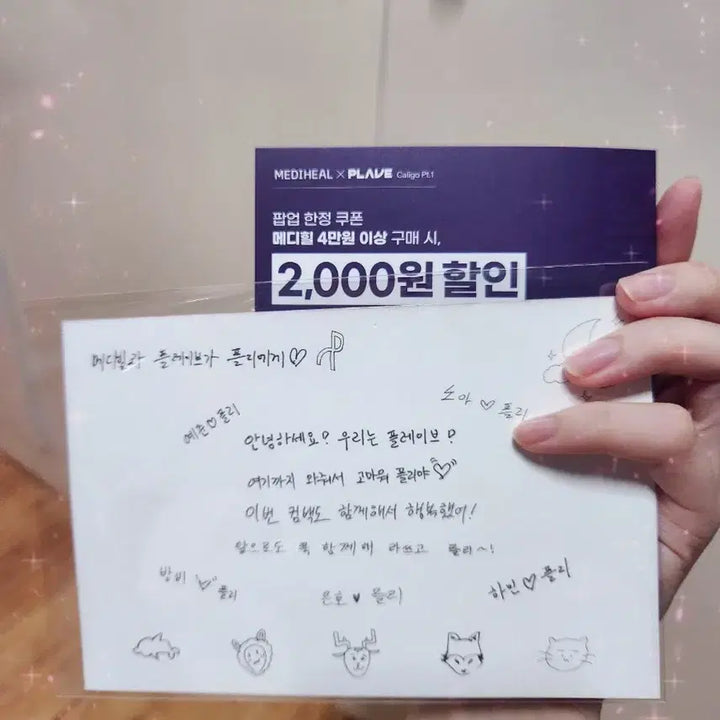 MEDIHEAL × PLAVE Caligo Pt.1
팝업 한정 쿠폰
메디힐 4만원 이상 구매 시,
2,000원 할인
메디힐과 플레이브가 플리에게♡
노아 ♡ 플리
예준♡플리
안녕하세요? 우리는 플레이브?
여기까지 와줘서 고마워 플리야♡
이번 컴백도 함께해서 행복했어!
앞으로도 쭉 함께해 플리~!
밤비 ♡ 플리
은호 ♥ 플리
하민♡플리